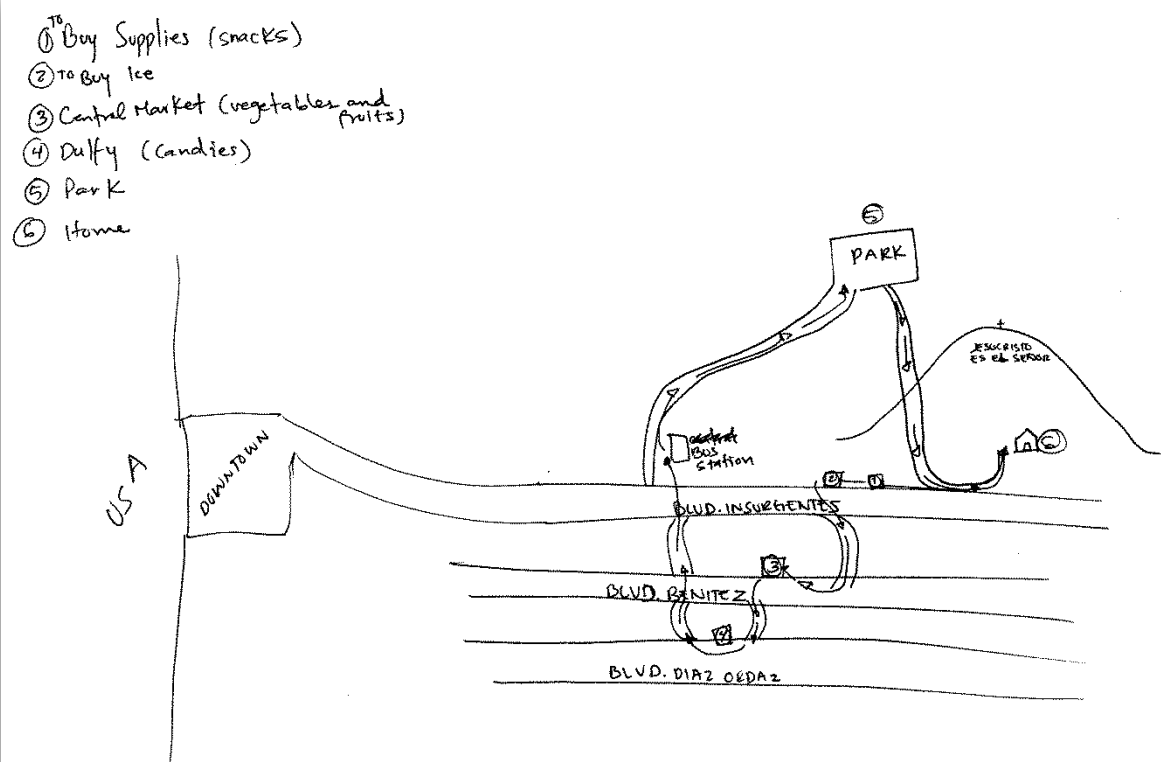 ① TO Buy Supplies (snacks)
② TO Buy Ice
③ Central Market (vegetables and fruits)
④ Dulfy (candies)
⑤ Park
⑥ Home
⑤
PARK
JESUCRISTO
ES EL SEÑOR
⑥
Bus
Station
DOWNTOWN
USA
② ①
BLVD. INSURGENTES
③
BLVD. BENITEZ
④
BLVD. DIAZ ORDAZ